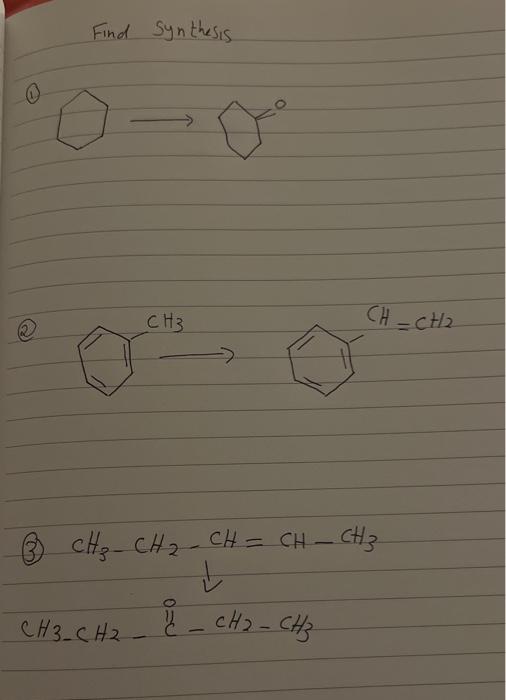 Find Synthesis
①
O
②
CH3
CH = CH2
③ CH3 - CH2 - CH = CH - CH3
↓
O
CH3 - CH2 - C - CH2 - CH3